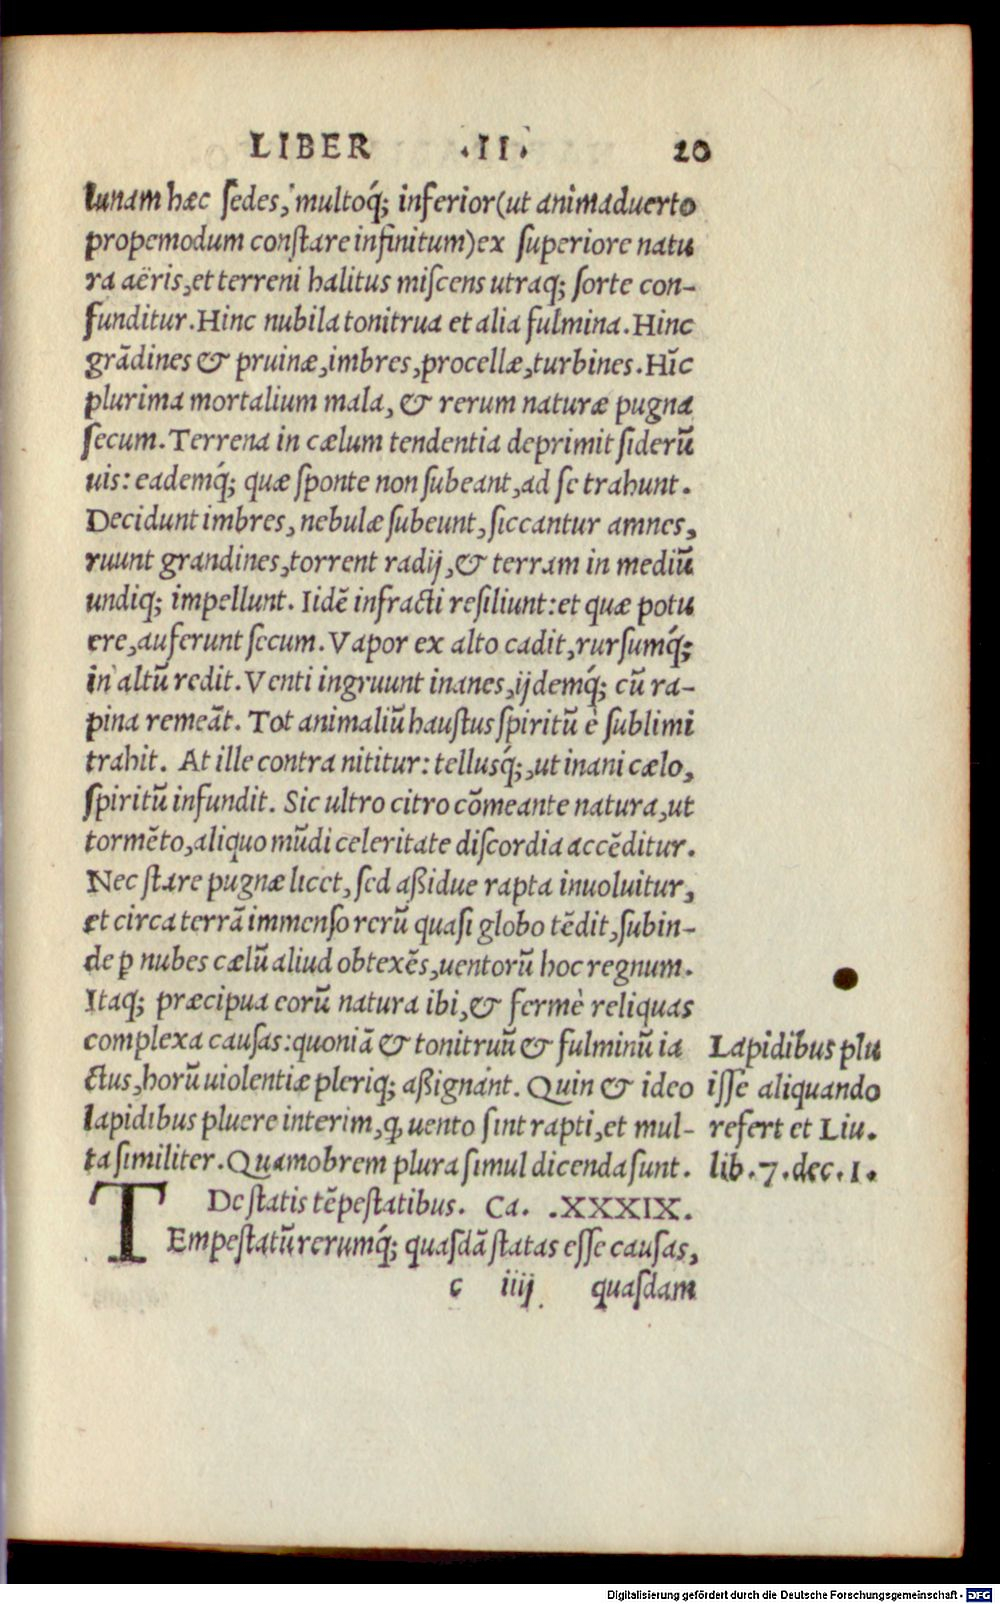 LIBER .II. 20
lunam hæc ſedes, multoq́; inferior(ut animaduerto
propemodum conſtare infinitum)ex ſuperiore natu
ra aëris,et terreni halitus miſcens utraq; ſorte con-
funditur.Hinc nubila tonitrua et alia fulmina.Hinc
grãdines & pruinæ,imbres,procellæ,turbines.Hĩc
plurima mortalium mala, & rerum naturæ pugna
ſecum.Terrena in cælum tendentia deprimit ſiderũ
uis: eademq́; quæ ſponte non ſubeant,ad ſe trahunt.
Decidunt imbres, nebulæ ſubeunt, ſiccantur amnes,
ruunt grandines,torrent radij,& terram in mediũ
undiq; impellunt. Iidẽ infracti reſiliunt:et quæ potu
ere,auferunt ſecum.Vapor ex alto cadit,rurſumq́;
in altũ redit.Venti ingruunt inanes,ijdemq́; cũ ra-
pina remeãt. Tot animaliũ hauſtus ſpiritũ è ſublimi
trahit. At ille contra nititur: tellusq́;,ut inani cælo,
ſpiritũ infundit. Sic ultro citro cõmeante natura,ut
tormẽto,aliquo mũdi celeritate diſcordia accẽditur.
Nec ſtare pugnæ licet, ſed aßidue rapta inuoluitur,
et circa terrã immenſo rerũ quaſi globo tẽdit,ſubin-
de ꝑ nubes cælũ aliud obtexẽs,uentorũ hoc regnum.
Itaq; præcipua eorũ natura ibi,& fermè reliquas
complexa cauſas:quoniã & tonitruũ & fulminũ ia
ctus,horũ uiolentiæ pleriq; aßignant. Quin & ideo
lapidibus pluere interim,ꝙ uento ſint rapti,et mul-
ta ſimiliter.Quamobrem plura ſimul dicenda ſunt.
Lapidibus plu
iſſe aliquando
refert et Liu.
lib.7.dec.1.
De ſtatis tẽpeſtatibus. Ca. .XXXIX.
TEmpeſtatũ rerumq́; quaſdã ſtatas eſſe cauſas,
c iiij quaſdam
Digitalisierung gefördert durch die Deutsche Forschungsgemeinschaft - DFG